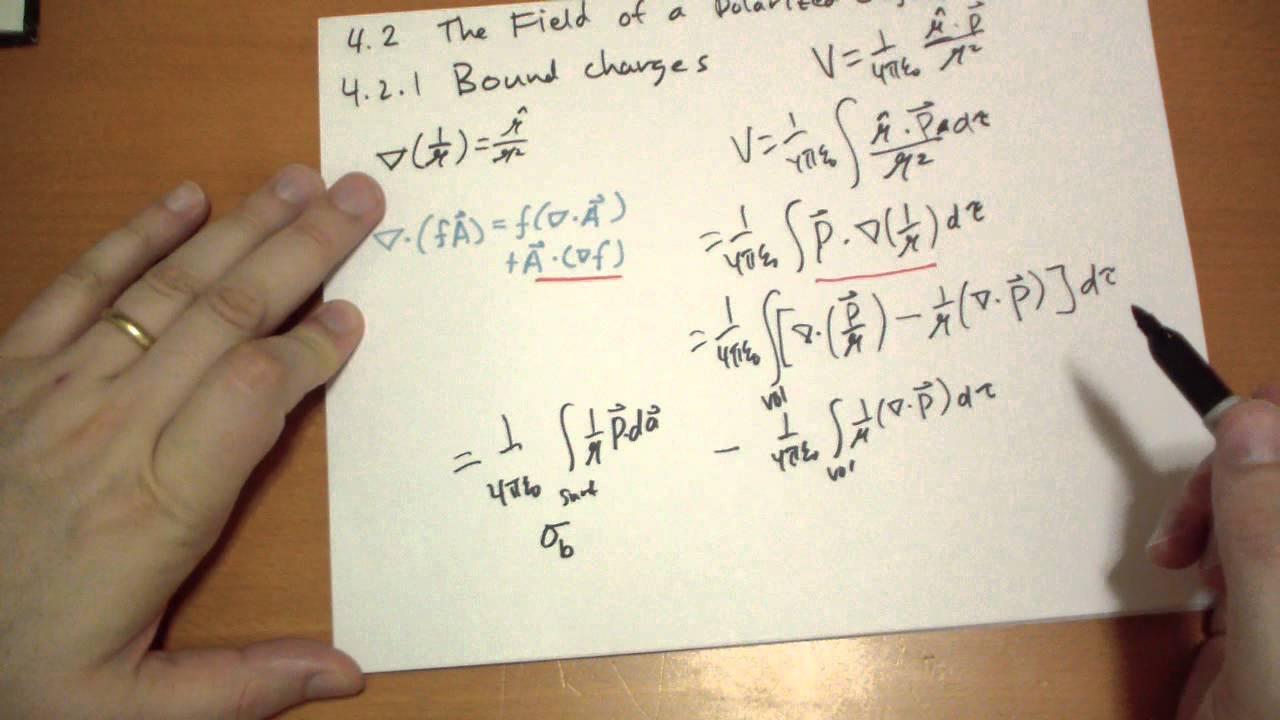 4.2 The Field of a Polarized
4.2.1 Bound charges
V = 1/4πε₀ 𝓇̂·p⃗/𝓇²
∇(1/𝓇) = 𝓇̂/𝓇²
V = 1/4πε₀ ∫ 𝓇̂·P⃗ dτ/𝓇²
∇·(fA⃗) = f(∇·A⃗)
+ A⃗·(∇f)
= 1/4πε₀ ∫ P⃗·∇(1/𝓇) dτ
= 1/4πε₀ ∫vol [∇·(P⃗/𝓇) − 1/𝓇 (∇·P⃗)] dτ
= 1/4πε₀ ∫surf 1/𝓇 P⃗·da⃗ − 1/4πε₀ ∫vol 1/𝓇 (∇·P⃗) dτ
σb